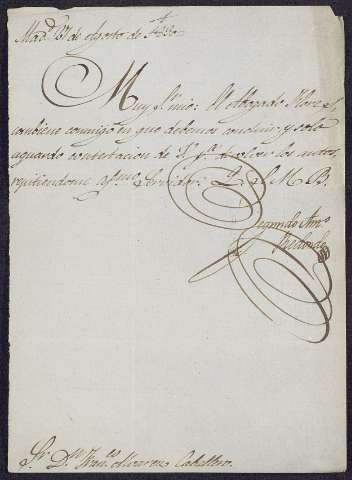 Mad.d 27 de Agosto de
Muy S.r mio: El Abogado Flores
combiene conmigo en que debemos concluir; y solo
aguardo contestacion de V. p.a los autos,
repitiendome af.mo Servidor Q. S. M. B.
Segundo Ant.o
Redondo
Sr. D.n Fran.co Alvarez Caballero.